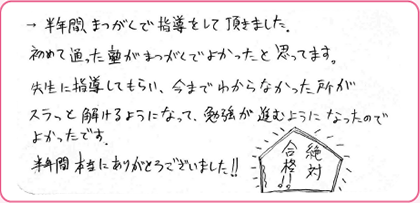 → 半年間まつがくで指導をして頂きました。
初めて通った塾がまつがくでよかったと思ってます。
先生に指導してもらい、今までわからなかった所が
スラっと解けるようになって、勉強が進むようになったので
よかったです。
半年間本当にありがとうございました!!
絶対
合格!!